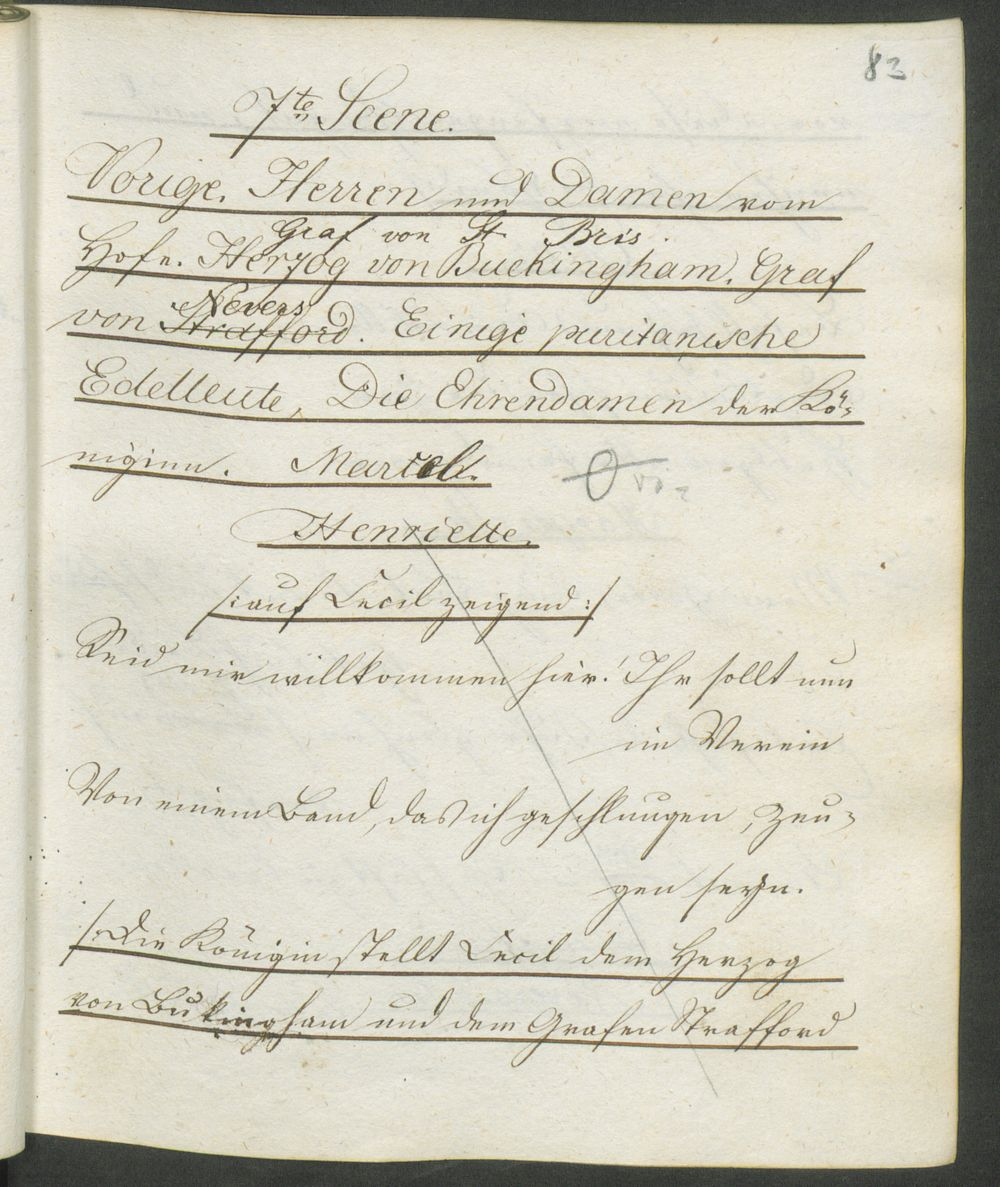 83
7te Scene.
Vorige. Herren und Damen vom
Graf von St. Bris.
Hofe. Herzog von Buckingham. Graf
Nevers
von Strafford. Einige puritanische
Edelleute, Die Ehrendamen der Kö-
niginn. Marcel.
Henriette.
/: auf Cecil zeigend :/
Seid mir willkommen hier! Ihr sollt nun
im Verein
Von einem Band, das ich geschlungen, Zeu-
gen seyn.
/: Die Königin stellt Cecil dem Herzog
von Bukingham und dem Grafen Strafford